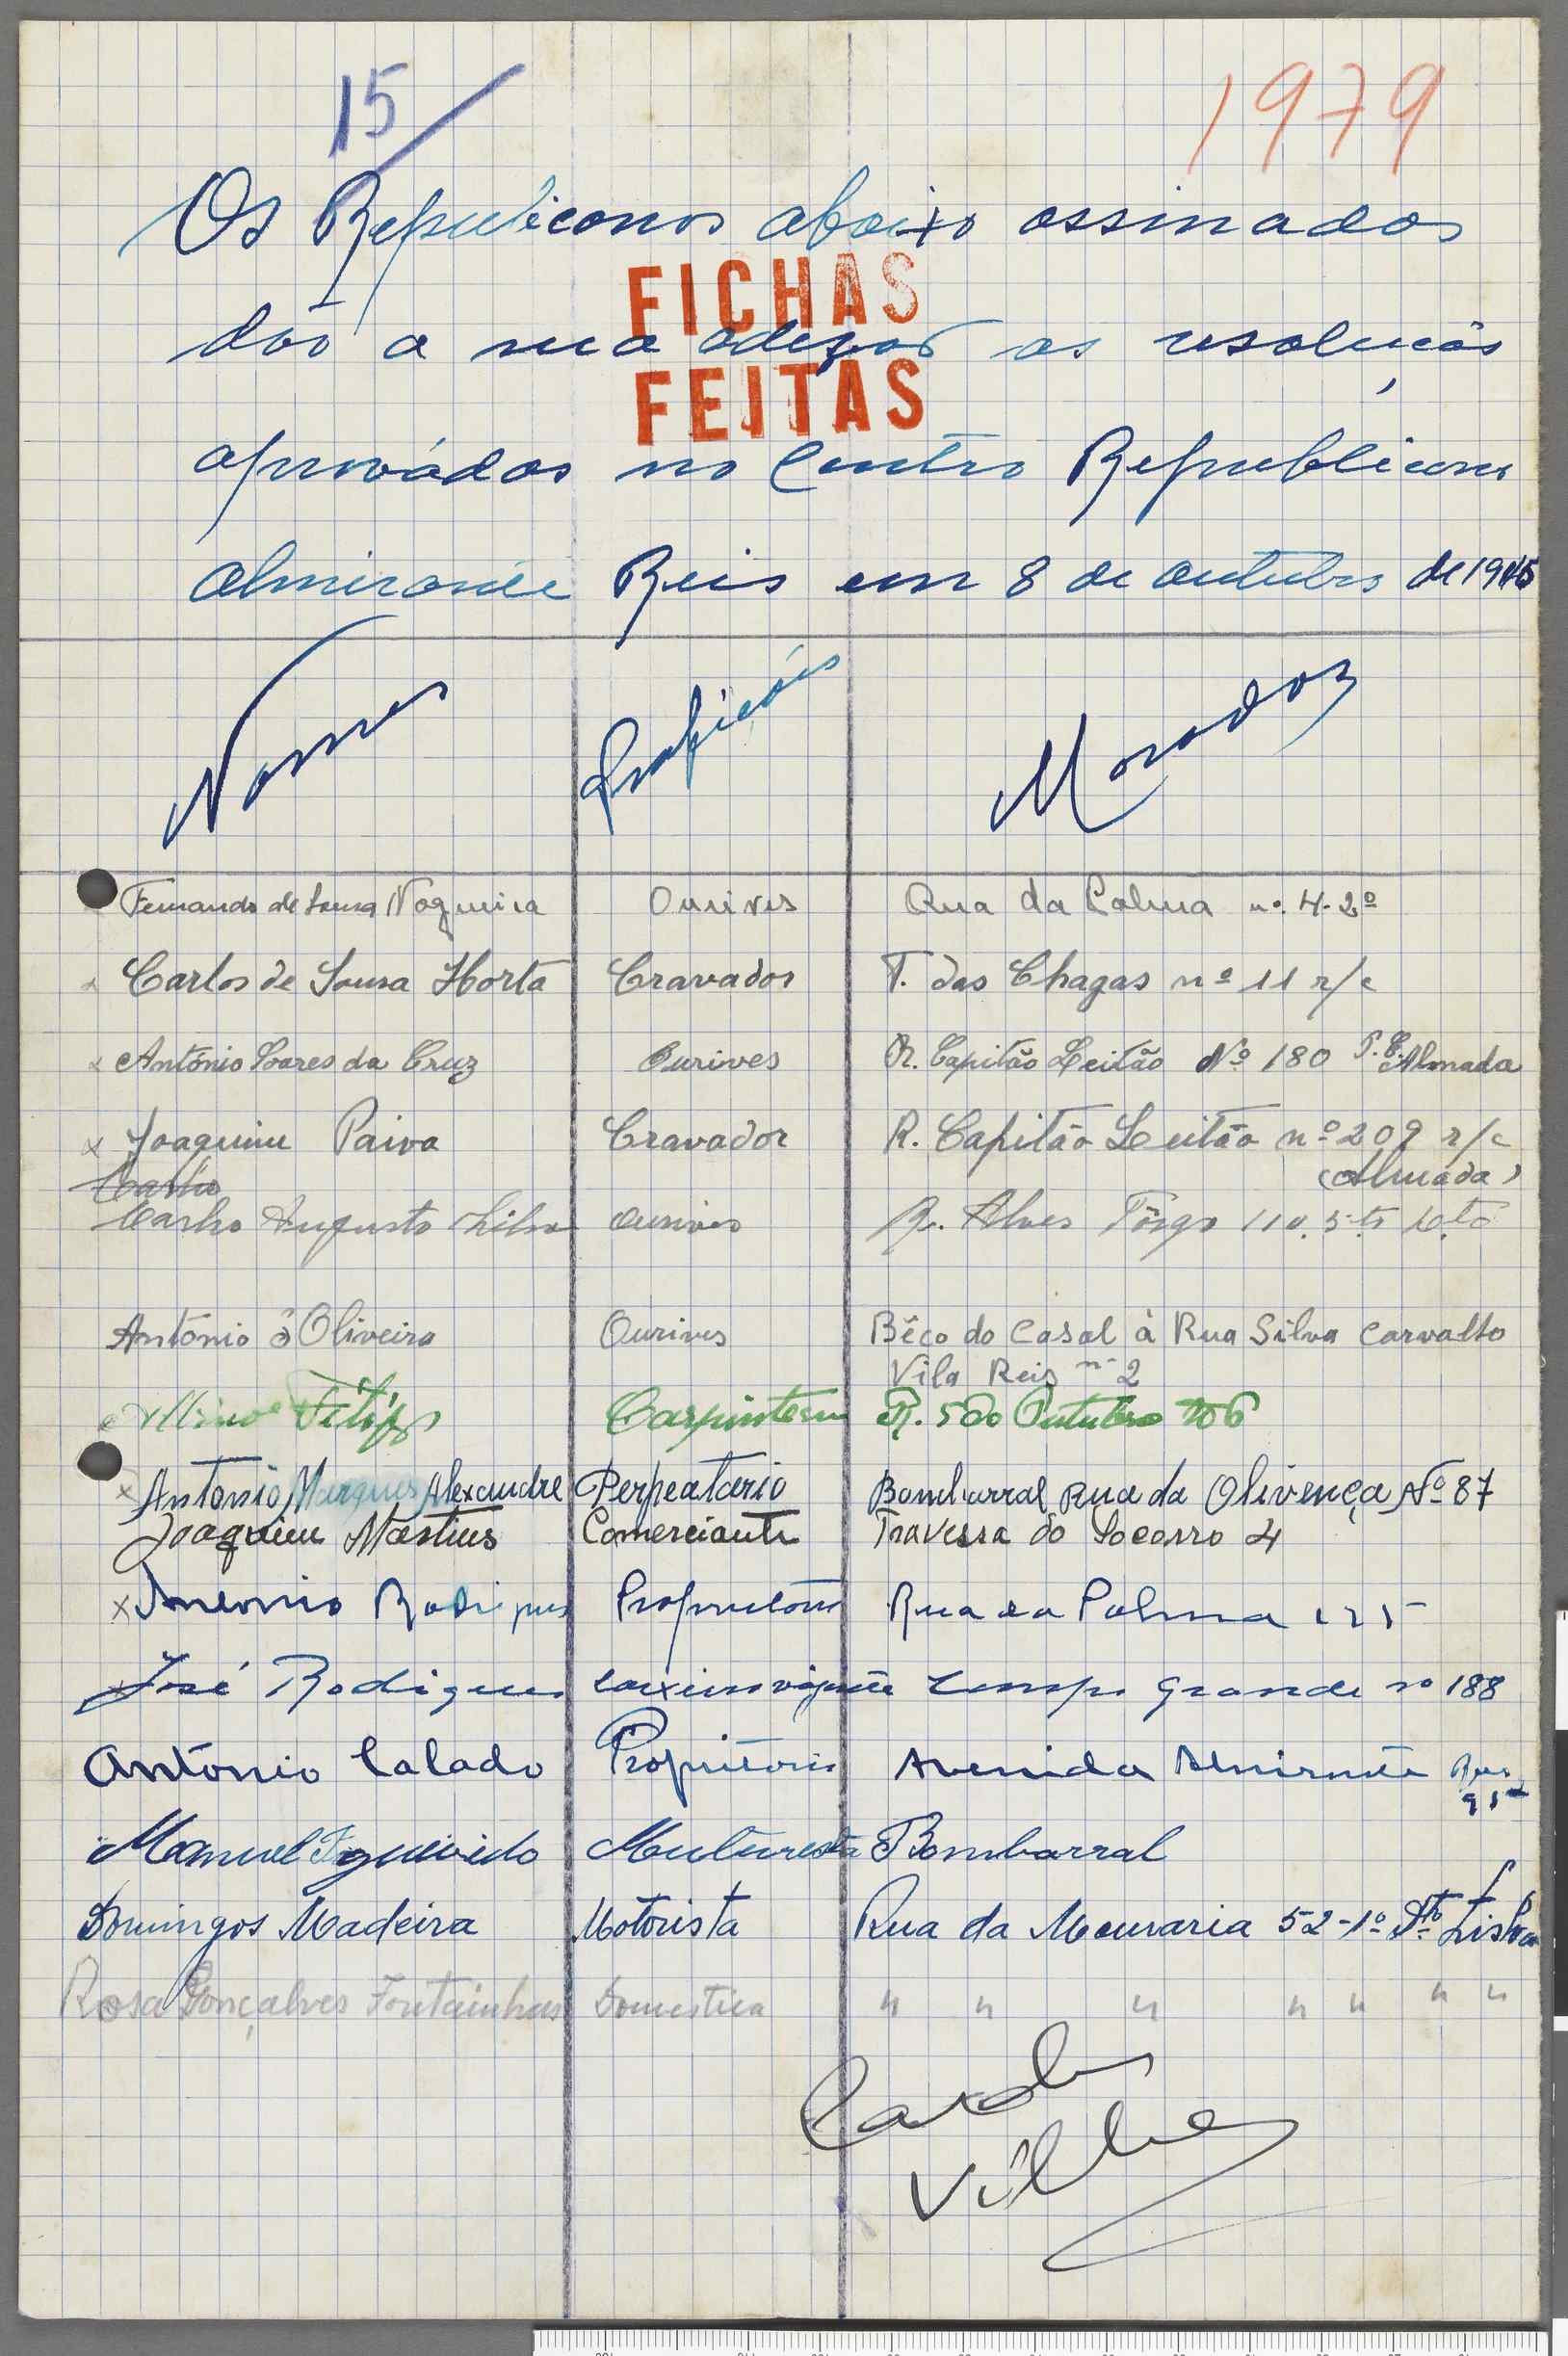 15
1979
Os Republiconos aboixo ossinados
dão a sua adezão as resoluçõs
FICHAS
FEITAS
aprovádas no Centro Republicono
Almirante Reis em 8 de Outubro de 1945
Nomes Profiçóis Moradas
Fernando de Sousa Nogueira Ourives Rua da Palma nº. 4-2º
Carlos de Sousa Horta Cravador T. das Chagas nº 11 r/c
António Soares da Cruz Ourives R. Capitão Leitão Nº 180 P.C. Almada
Joaquim Paiva Cravador R. Capitão Leitão nº 209 r/c
(Almada)
Carlos
Carlos Augusto Silva Ourives R. Alves Tôrgo 110. 5º
António d'Oliveira Ourives Bêco do Casal à Rua Silva Carvalho
Vila Reis nº 2
Filipe Carpinteiro R. 5 do Outubro 106
x Antonio Marques Alexandre Perpeatario Bombarral Rua da Olivença Nº 87
Joaquim Martins Comerciante Travessa do Socorro 4
x Antonio Rodrigues Proprietário Rua da Palma
José Rodrigues caixeiro viajante Campo Grande nº 188
António Calado Propritorio Avenida Almirante Reis
Manuel Figueirêdo Muturesta Bombarral
Domingos Madeira Motorista Rua da Mouraria 52-1º Dto Lisboa
Rosa Gonçalves Fontainhas Domestica " " " " " " "
Carlos